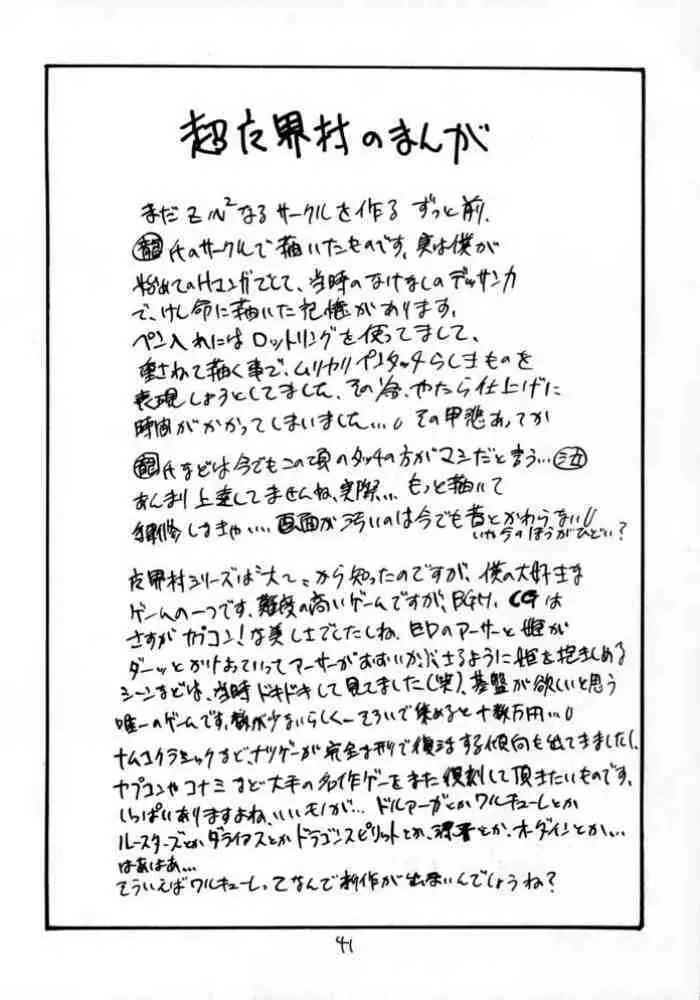 超魔界村のまんが
まだZN²なるサークルを作る ずっと前、
氏のサークルで描いたものです。実は僕が
始めてのHマンガでして、当時のなけなしのデッサン力
で、けし命に描いた記憶があります。
ペン入れにはロットリングを使ってまして、
重ねて描く事で、ムリヤリペンタッチらしきものを
表現しようとしてました。その分、やたら仕上げに
時間がかかってしまいました…。その甲斐あってか
氏などは今でもこの頃のタッチの方がマシだと言う…
あんまり上達してませんね、実際… もっと描いて
しなきゃ…。画面が汚いのは今でも昔とかわらない
いや今のほうがひどい?
魔界村シリーズは"大〃から知ったのですが、僕の大好きな
ゲームの一つです。難度の高いゲームですが、BGM、CGは
さすがカプコン!な美しさでしたしね。EDのアーサーと姫が
ダーッとかけよっていってアーサーがおおいかぶさるように姫を抱きしめる
シーンなどは、当時ドキドキして見てました(笑)。基盤が欲しいと思う
唯一のゲームです。数が少ないらしくーそろいで集めると十数万円…
ナムコクラシックなど、ナツゲーが完全な形で復活する傾向も出てきましたし、
カプコンやコナミなど大手の名作ゲーをまた復刻して頂きたいものです。
いっぱいありますよね、いいモノが… ドルアーガとかワルキューレとか
ルースターズとかダライアスとかドラゴンスピリットとか、源平とか、オーダインとか…
はあはあ…
そういえばワルキューレってなんで新作が出ないんでしょうね?
41